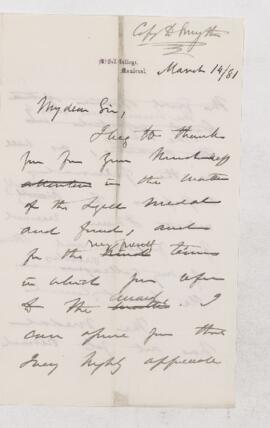 Copy D Smythe
McGill College,
Montreal.
March 14/81
My dear Sir,
I beg to thank
you for your kindness
attention in the matter
of the Lyell medal
and fund, and
very
for the kind terms
in which you refer
to the award. I
can assure you that
I very highly appreciate